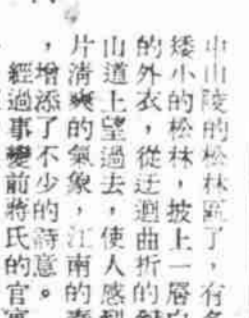 中山陵的松林區了，有
矮小的松林，披上一層
的外衣，從迂迴曲折的
山道上望過去，使人感到
片清爽的氣象，江南的
，增添了不少的詩意。
經過事變前蔣氏的官